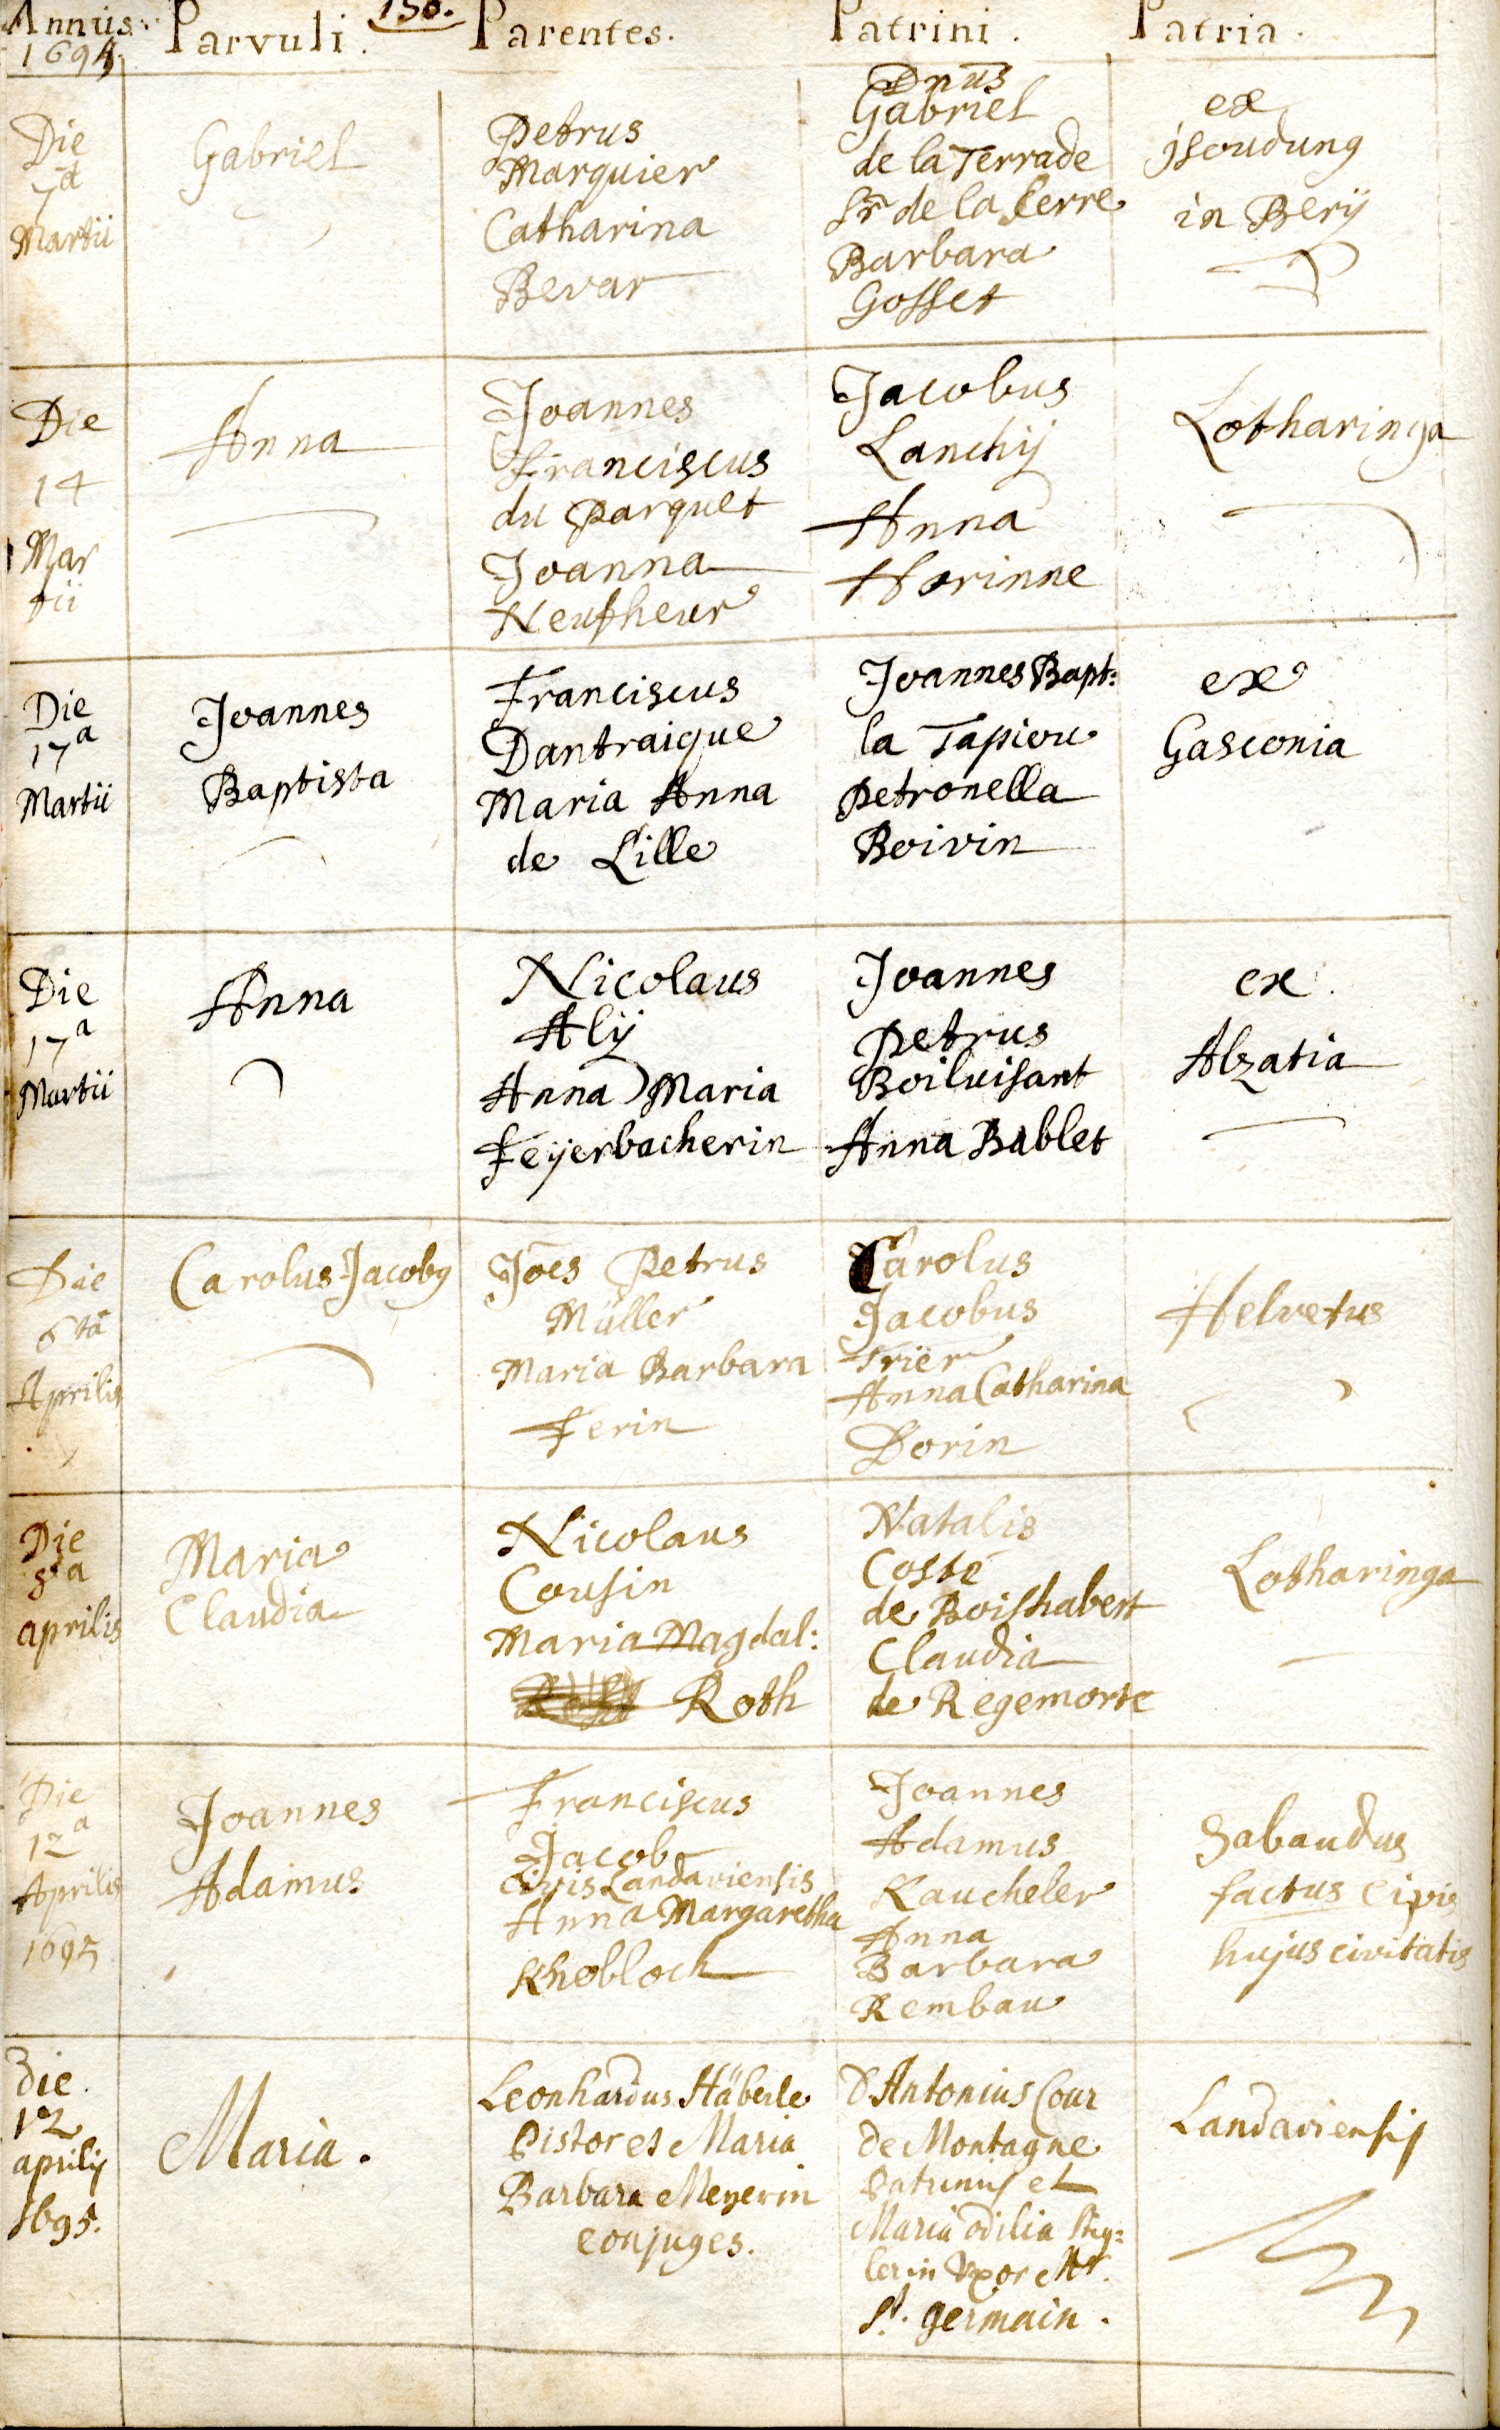 Annus. 150.
1694. Parvuli. Parentes. Patrini. Patria.
Die
7a
Martii
Gabriel
Petrus
Marquier
Catharina
Bevar
Dnus
Gabriel
de la Terrade
Sr de la Serre
Barbara
Gosset
ex
jsoudung
in Berij
Die
14
Mar
tii
Anna
Joannes
Franciscus
du Parquet
Joanna
Neufheur
Jacobus
Lanchij
Anna
Horinne
Lotharinga
Die
17a
Martii
Joannes
Baptista
Franciscus
Dantraigue
Maria Anna
de Lille
Joannes Bapt:
la Tapiou
Petronella
Boivin
ex
Gasconia
Die
17a
Martii
Anna
Nicolaus
Alÿ
Anna Maria
Feÿerbacherin
Joannes
Petrus
Boiluisant
Anna Bablet
ex
Alzatia
Die
6ta
Aprilis
Carolus Jacobg
Joes Petrus
Müller
Maria Barbara
Ferin
Carolus
Jacobus
Trier
Anna Catharina
Dorin
Helvetus
Die
8a
aprilis
Maria
Claudia
Nicolaus
Cousin
Maria Magdal:
Roth
Natalis
Coste
de Boishabert
Claudia
de Regemorte
Lotharinga
Die
12a
Aprilis
1695
Joannes
Adamus
Franciscus
Jacob
civis Landaviensis
Anna Margaretha
Knobloch
Joannes
Adamus
Kaucheler
Anna
Barbara
Rembau
Sabaudus
factus Civis
hujus civitatis
Die
12
aprilij
1695.
Maria.
Leonhardus Häberle
Pistor et Maria
Barbara Meyerin
conjuges.
D Antonius Cour
de Montagne
Patrinus et
Maria odilia Stig=
lerin Uxor Mr.
St. germain.
Landaviensis